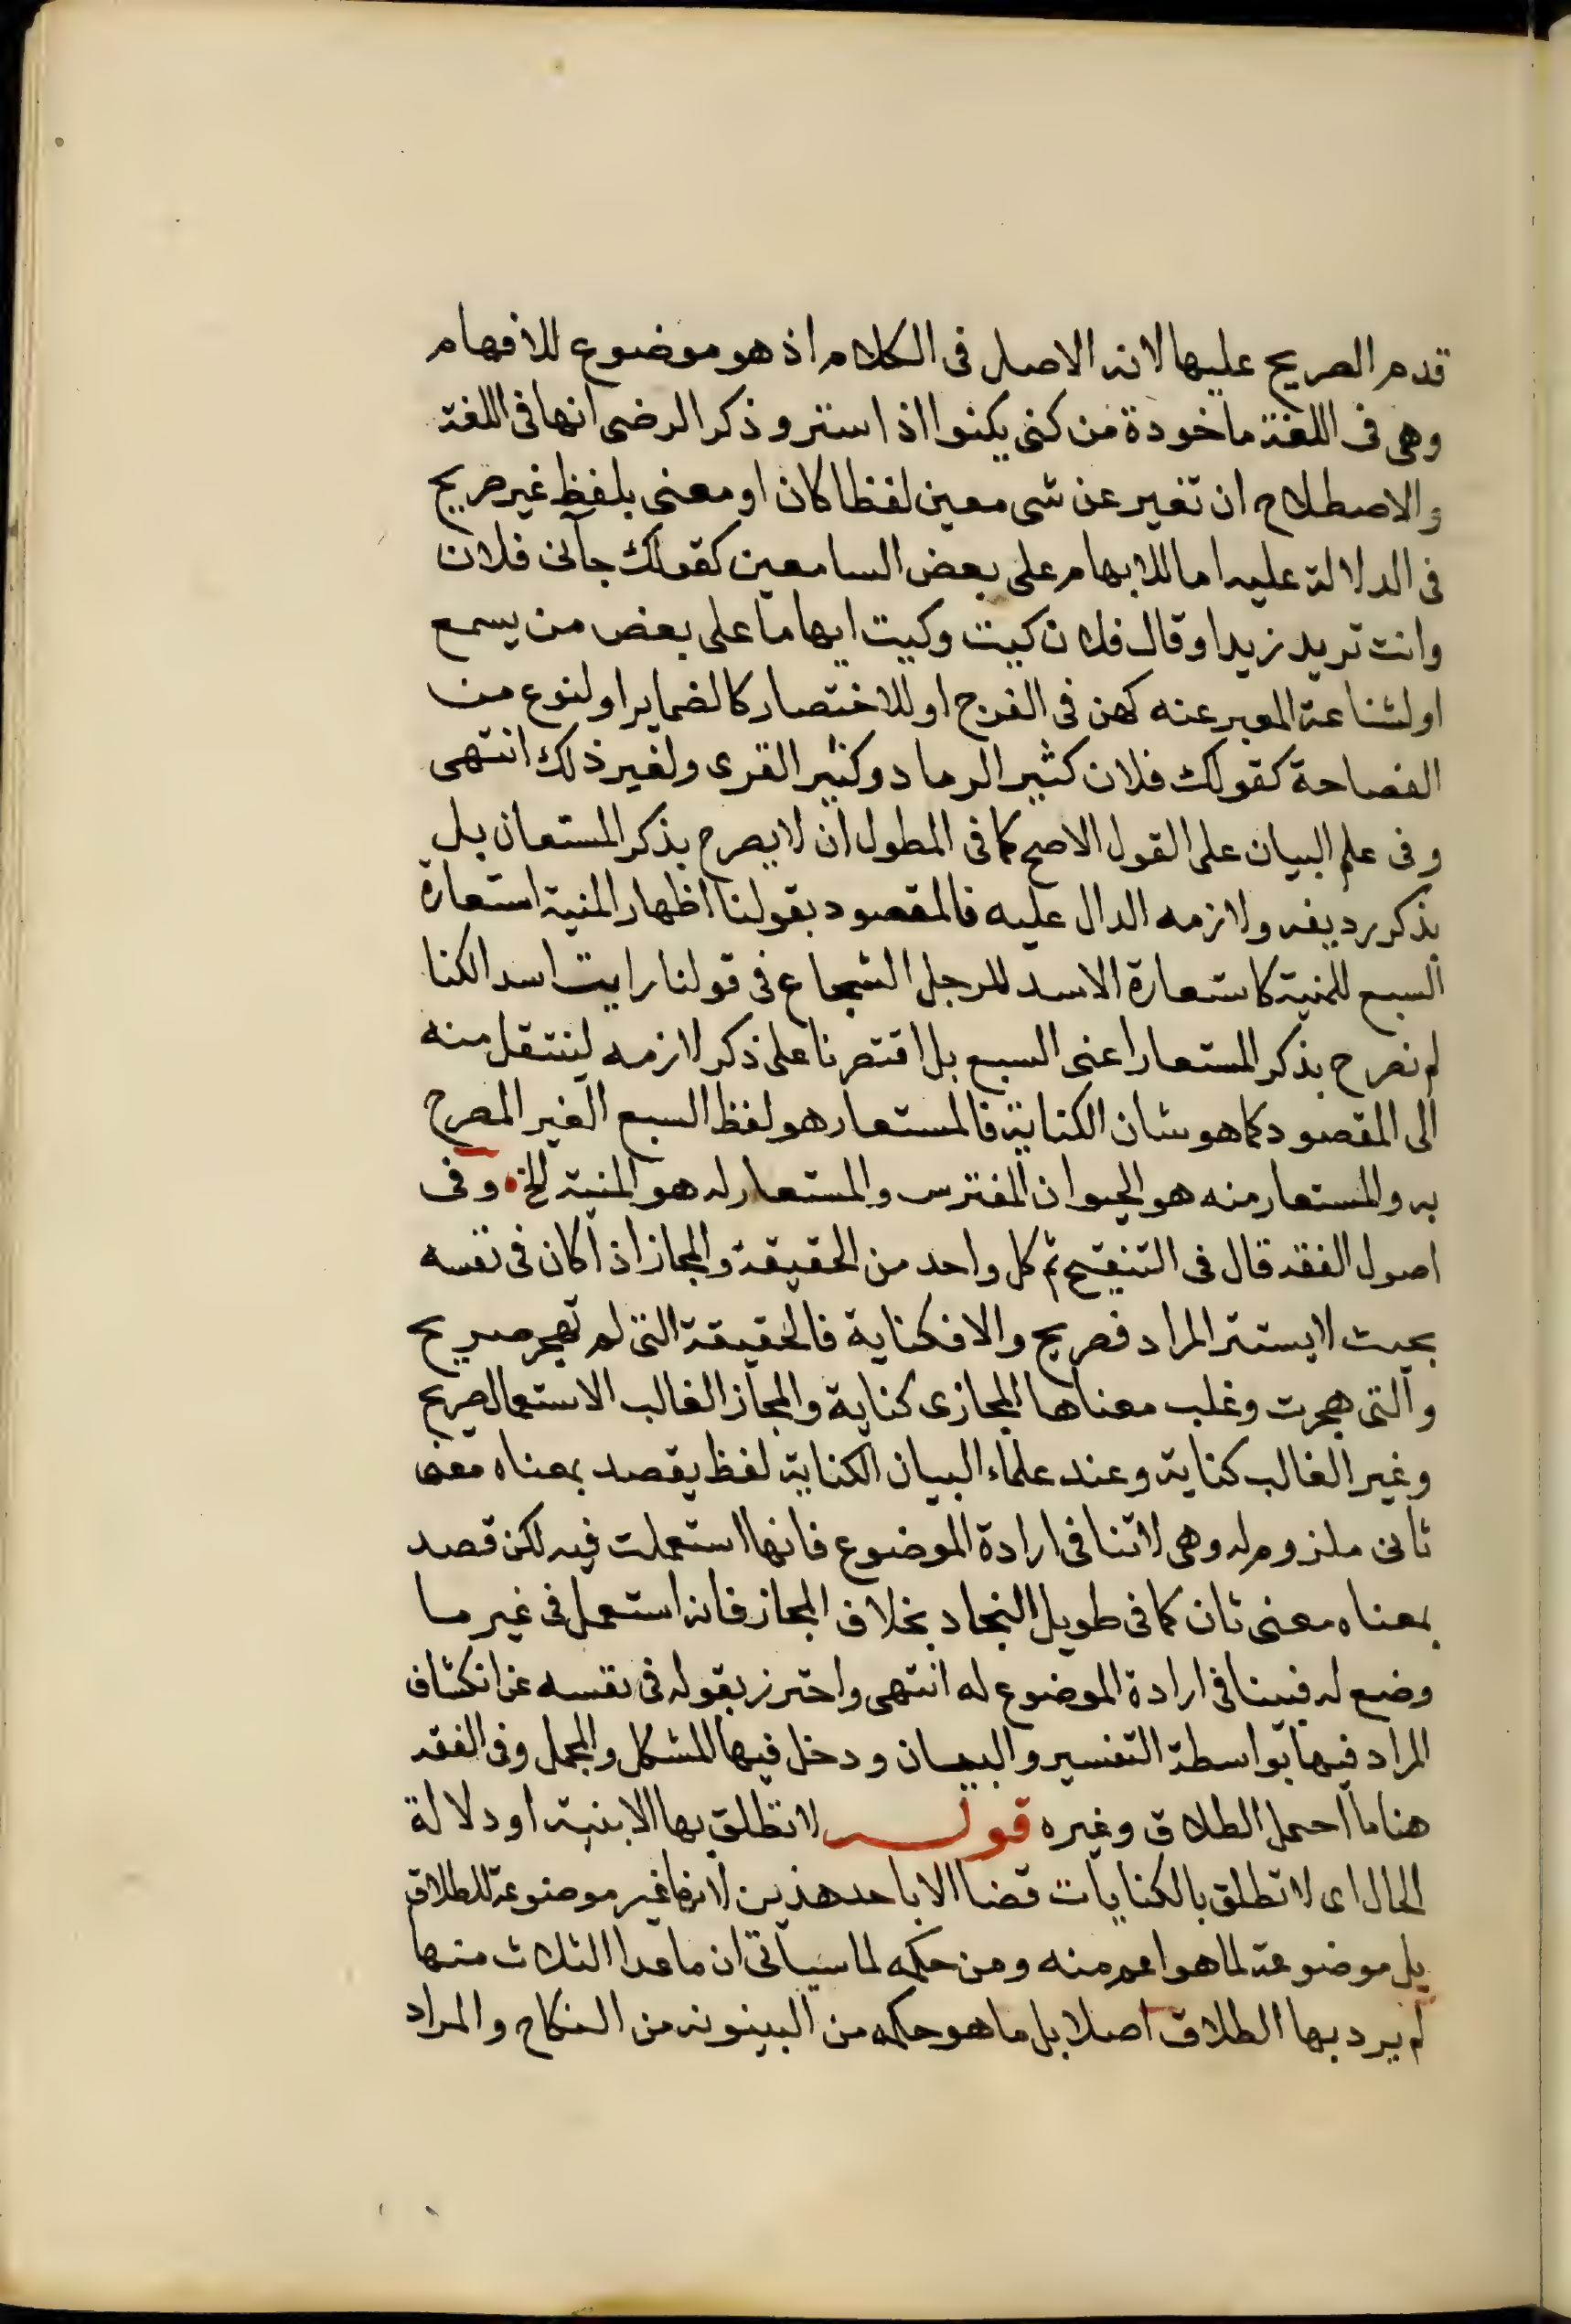 قدم الصريح عليها لانه الاصل فى الكلام اذ هو موضوع للافهام
وهى فى اللغة ماخودة من كنى يكنوا اذ استر وذكر الرضى انها فى اللغة
والاصطلاح ان تغير عن شى معين لفظا كان او معنى بلفظ غير صريح
فى الدلالة عليه اما للابهام على بعض السامعين كقولك جآنى فلان
وانت تريد زيدا وقال فلان كيت وكيت ابهاما على بعض من يسمع
او لشناعة المعبر عنه كهن فى الفرج او للاختصار كالضماير او لنوع من
الفصاحة كقولك فلان كثير الرماد وكثير القرى ولغير ذلك انتهى
وفى علم البيان على القول الاصح كما فى المطول ان لا يصرح بذكر المستعان بل
بذكر رديفه ولازمه الدال عليه فالمقصود بقولنا اظهار المنية استعارة
السبع للمنية كاستعارة الاسد للرجل الشجاع فى قولنا رايت اسد الكنا
لم نصرح بذكر المستعار اعنى السبع بل اقتصرنا على ذكر لازمه لينتقل منه
الى المقصود كما هو شان الكناية فالمستعار هو لفظ السبع الغير المصرح
به والمستعار منه هو الحيوان المفترس والمستعار له هو المنية الخ وفى
اصول الفقه قال فى التنقيح ثم كل واحد من الحقيقة والمجاز اذا كان فى نفسه
بحيث لا يستتر المراد فصريح والا فكناية فالحقيقة التى لم تهجر صريح
والتى هجرت وغلب معناها المجازى كناية والمجاز الغالب الاستعمال صريح
وغير الغالب كناية وعند علماء البيان الكناية لفظ يقصد بمعناه معنى
ثانى ملزوم له وهى لاتنافى ارادة الموضوع فانها استعملت فيه لكن قصد
بمعناه معنى ثان كما فى طويل النجاد بخلاف المجاز فانه استعمل فى غير ما
وضع له فينافى ارادة الموضوع له انتهى واحترز بقوله فى نفسه عن انكشاف
المراد فيها بواسطة التفسير والبيان ودخل فيها المشكل والمجمل وفى الفقه
هنا ما احتمل الطلاق وغيره قوله لا تطلق بها الا بنية او دلالة
الحال اى لا تطلق بالكنايات قضا الا باحد هذين لانها غير موضوعة للطلاق
بل موضوعة لما هو اعم منه ومن حكمه لما سياتى ان ما عدا الثلاث منها
لم يرد بها الطلاق اصلا بل ما هو حكمه من البينونه من النكاح والمراد